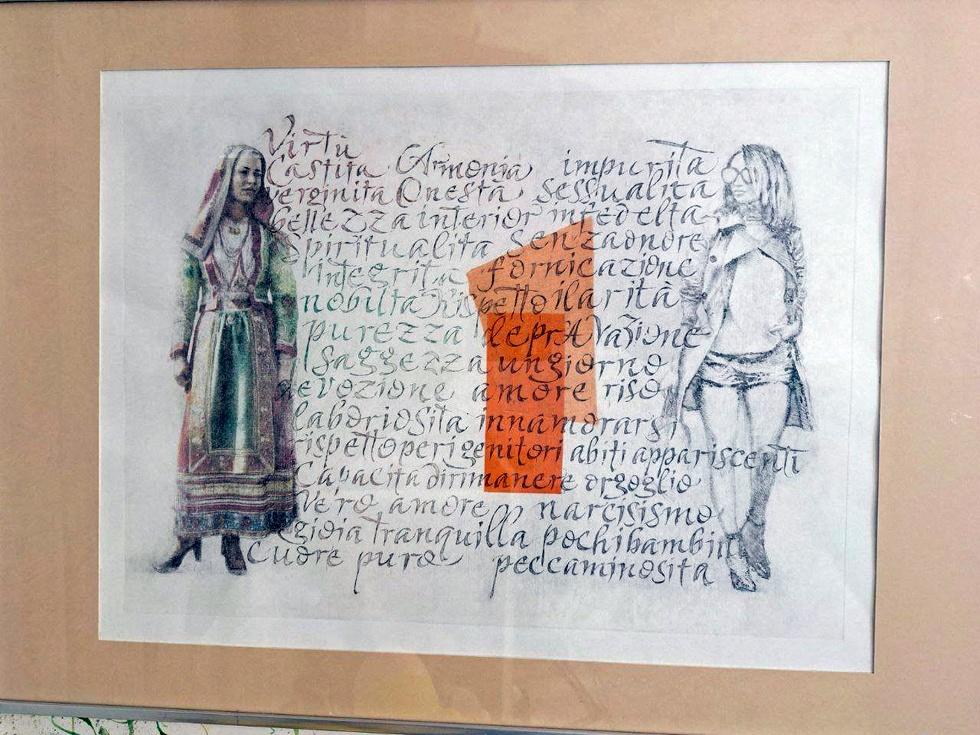 Virtù
Castita Armonia impurita
verginita Onestà sessualita
bellezza interior infedelta
Spiritualita senzaonore
integrita fornicazione
nobilta Rispetto ilarità
purezza depravazione
Saggezza ungiorno
devozione amore riso
laboriosita innamorarsi
rispettoperigenitori abiti appariscenti
Capacita dirimanere orgoglio
Vero amore narcisismo
gioia tranquilla pochibambini
Cuore puro peccaminosita